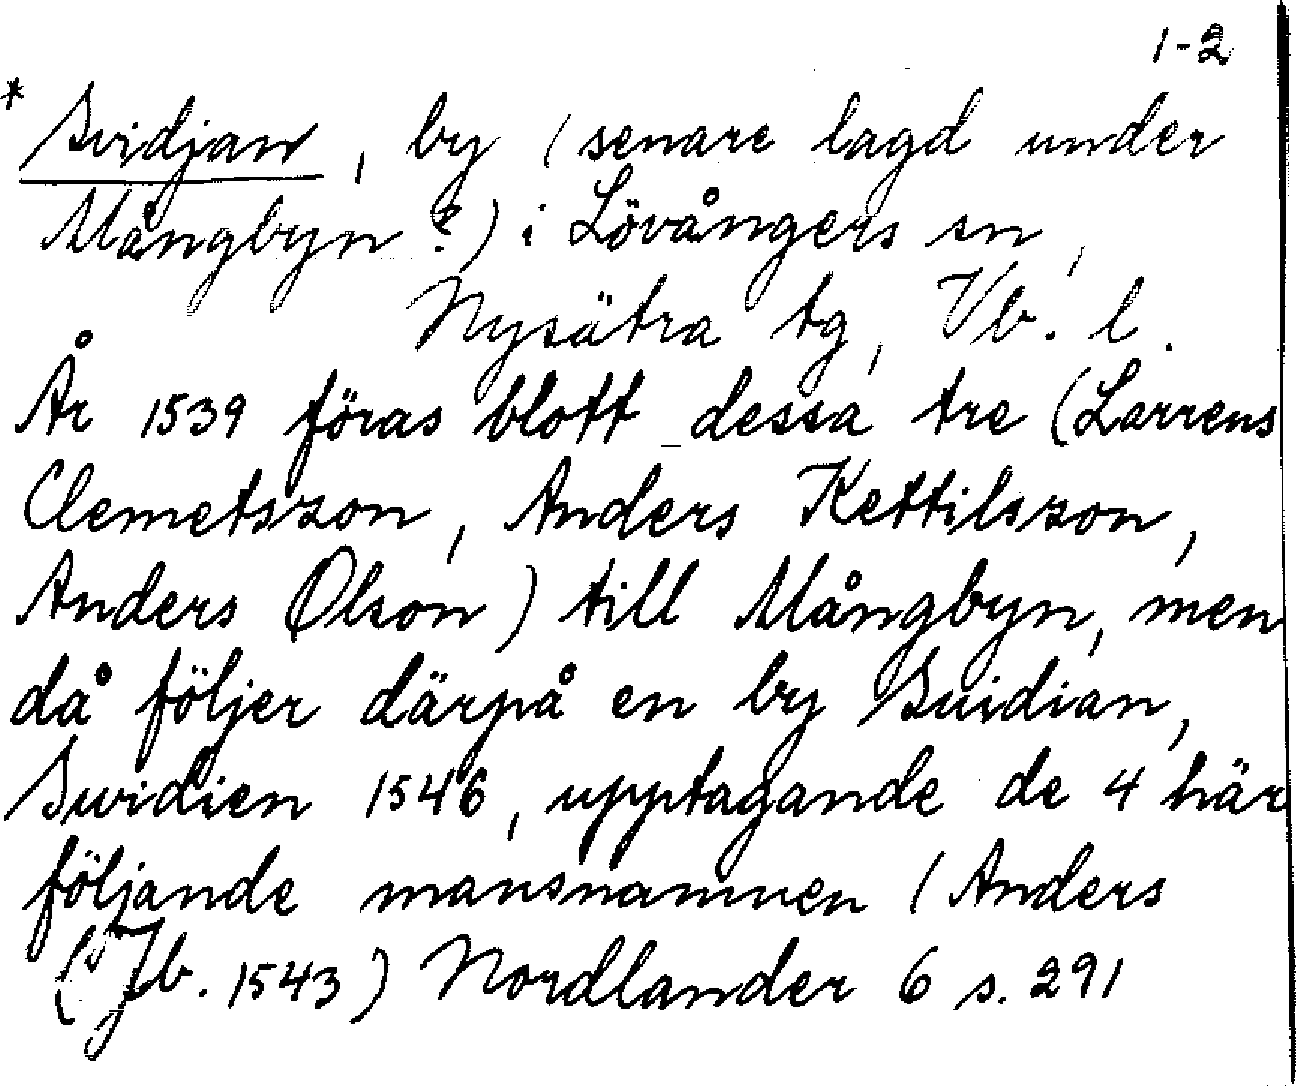 1-2
* Svidjan, by (senare lagd under
Mångbyn?) i Lövångers sn,
Nysätra tg, Vb. l.
År 1539 föras blott dessa tre (Larrens
Clemetszon, Anders Kettilszon,
Anders Olson) till Mångbyn, men
då följer därpå en by Suidian,
Swidien 1546, upptagande de 4 här
följande mansnamnen (Anders
(Jb. 1543) Nordlander 6 s. 291